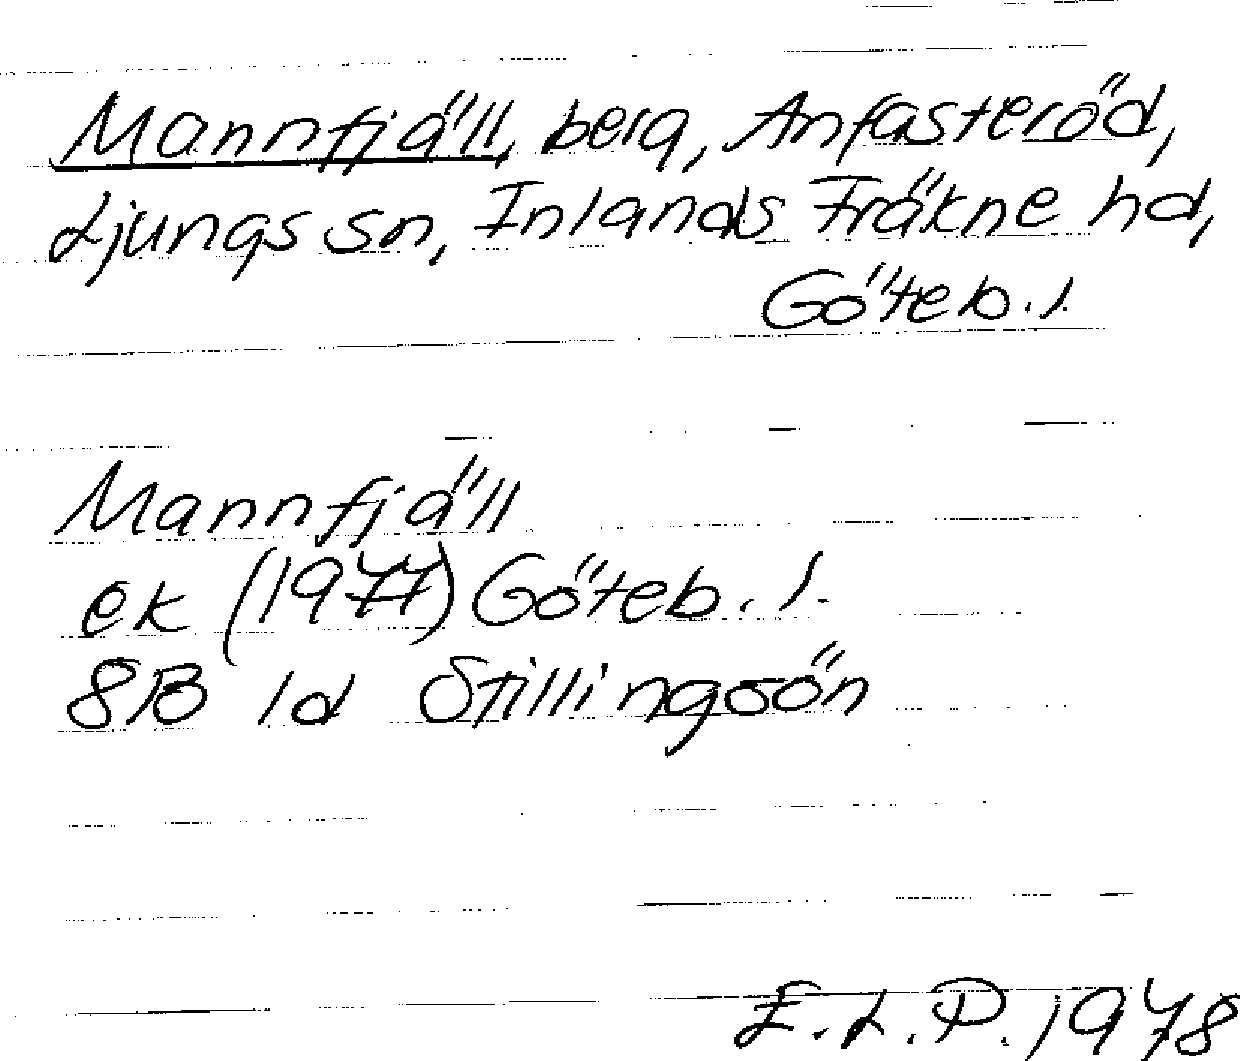 Mannfjäll, berg, Anfasteröd,
Ljungs sn, Inlands Fräkne hd,
Göteb. l.
Mannfjäll
ek (1977) Göteb. l.
8B 1d Stillingsön
E.L.P. 1978